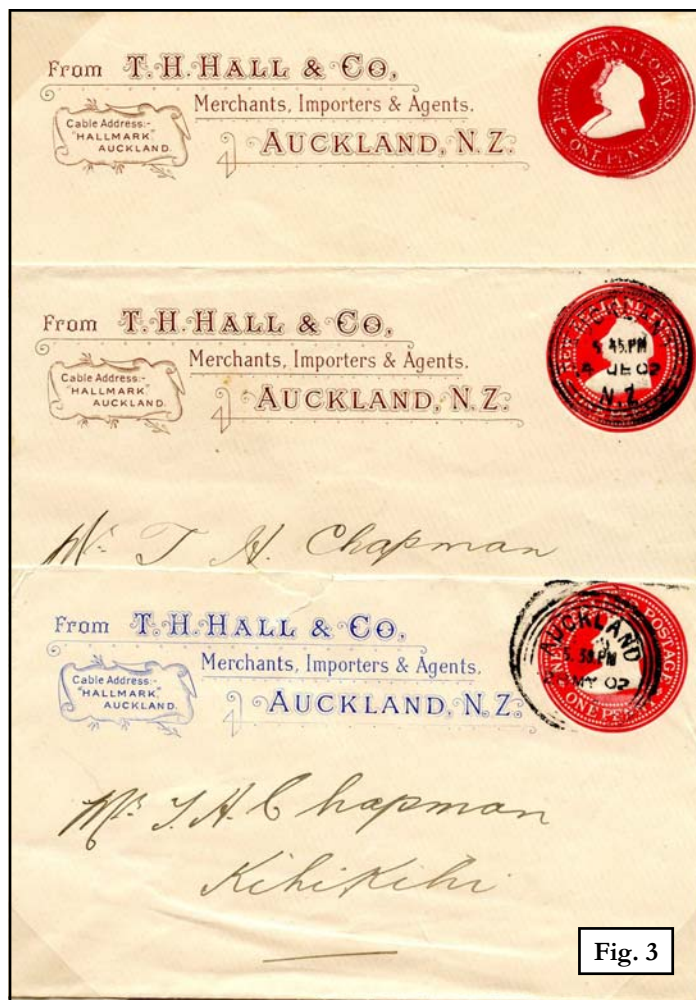 From T. H. HALL & CO,
Merchants, Importers & Agents.
Cable Address:-
"HALLMARK,"
AUCKLAND.
AUCKLAND, N. Z.
NEW ZEALAND POSTAGE
ONE PENNY
From T. H. HALL & CO,
Merchants, Importers & Agents.
Cable Address:-
"HALLMARK,"
AUCKLAND.
AUCKLAND, N. Z.
45.PM
4 JE 02
N.Z
Mr. T. H. Chapman
From T. H. HALL & CO,
Merchants, Importers & Agents.
Cable Address:-
"HALLMARK,"
AUCKLAND.
AUCKLAND, N. Z.
POSTAGE
ONE PENNY
AUCKLAND
MY 02
Mr. T. H. Chapman
Kihikihi
Fig. 3